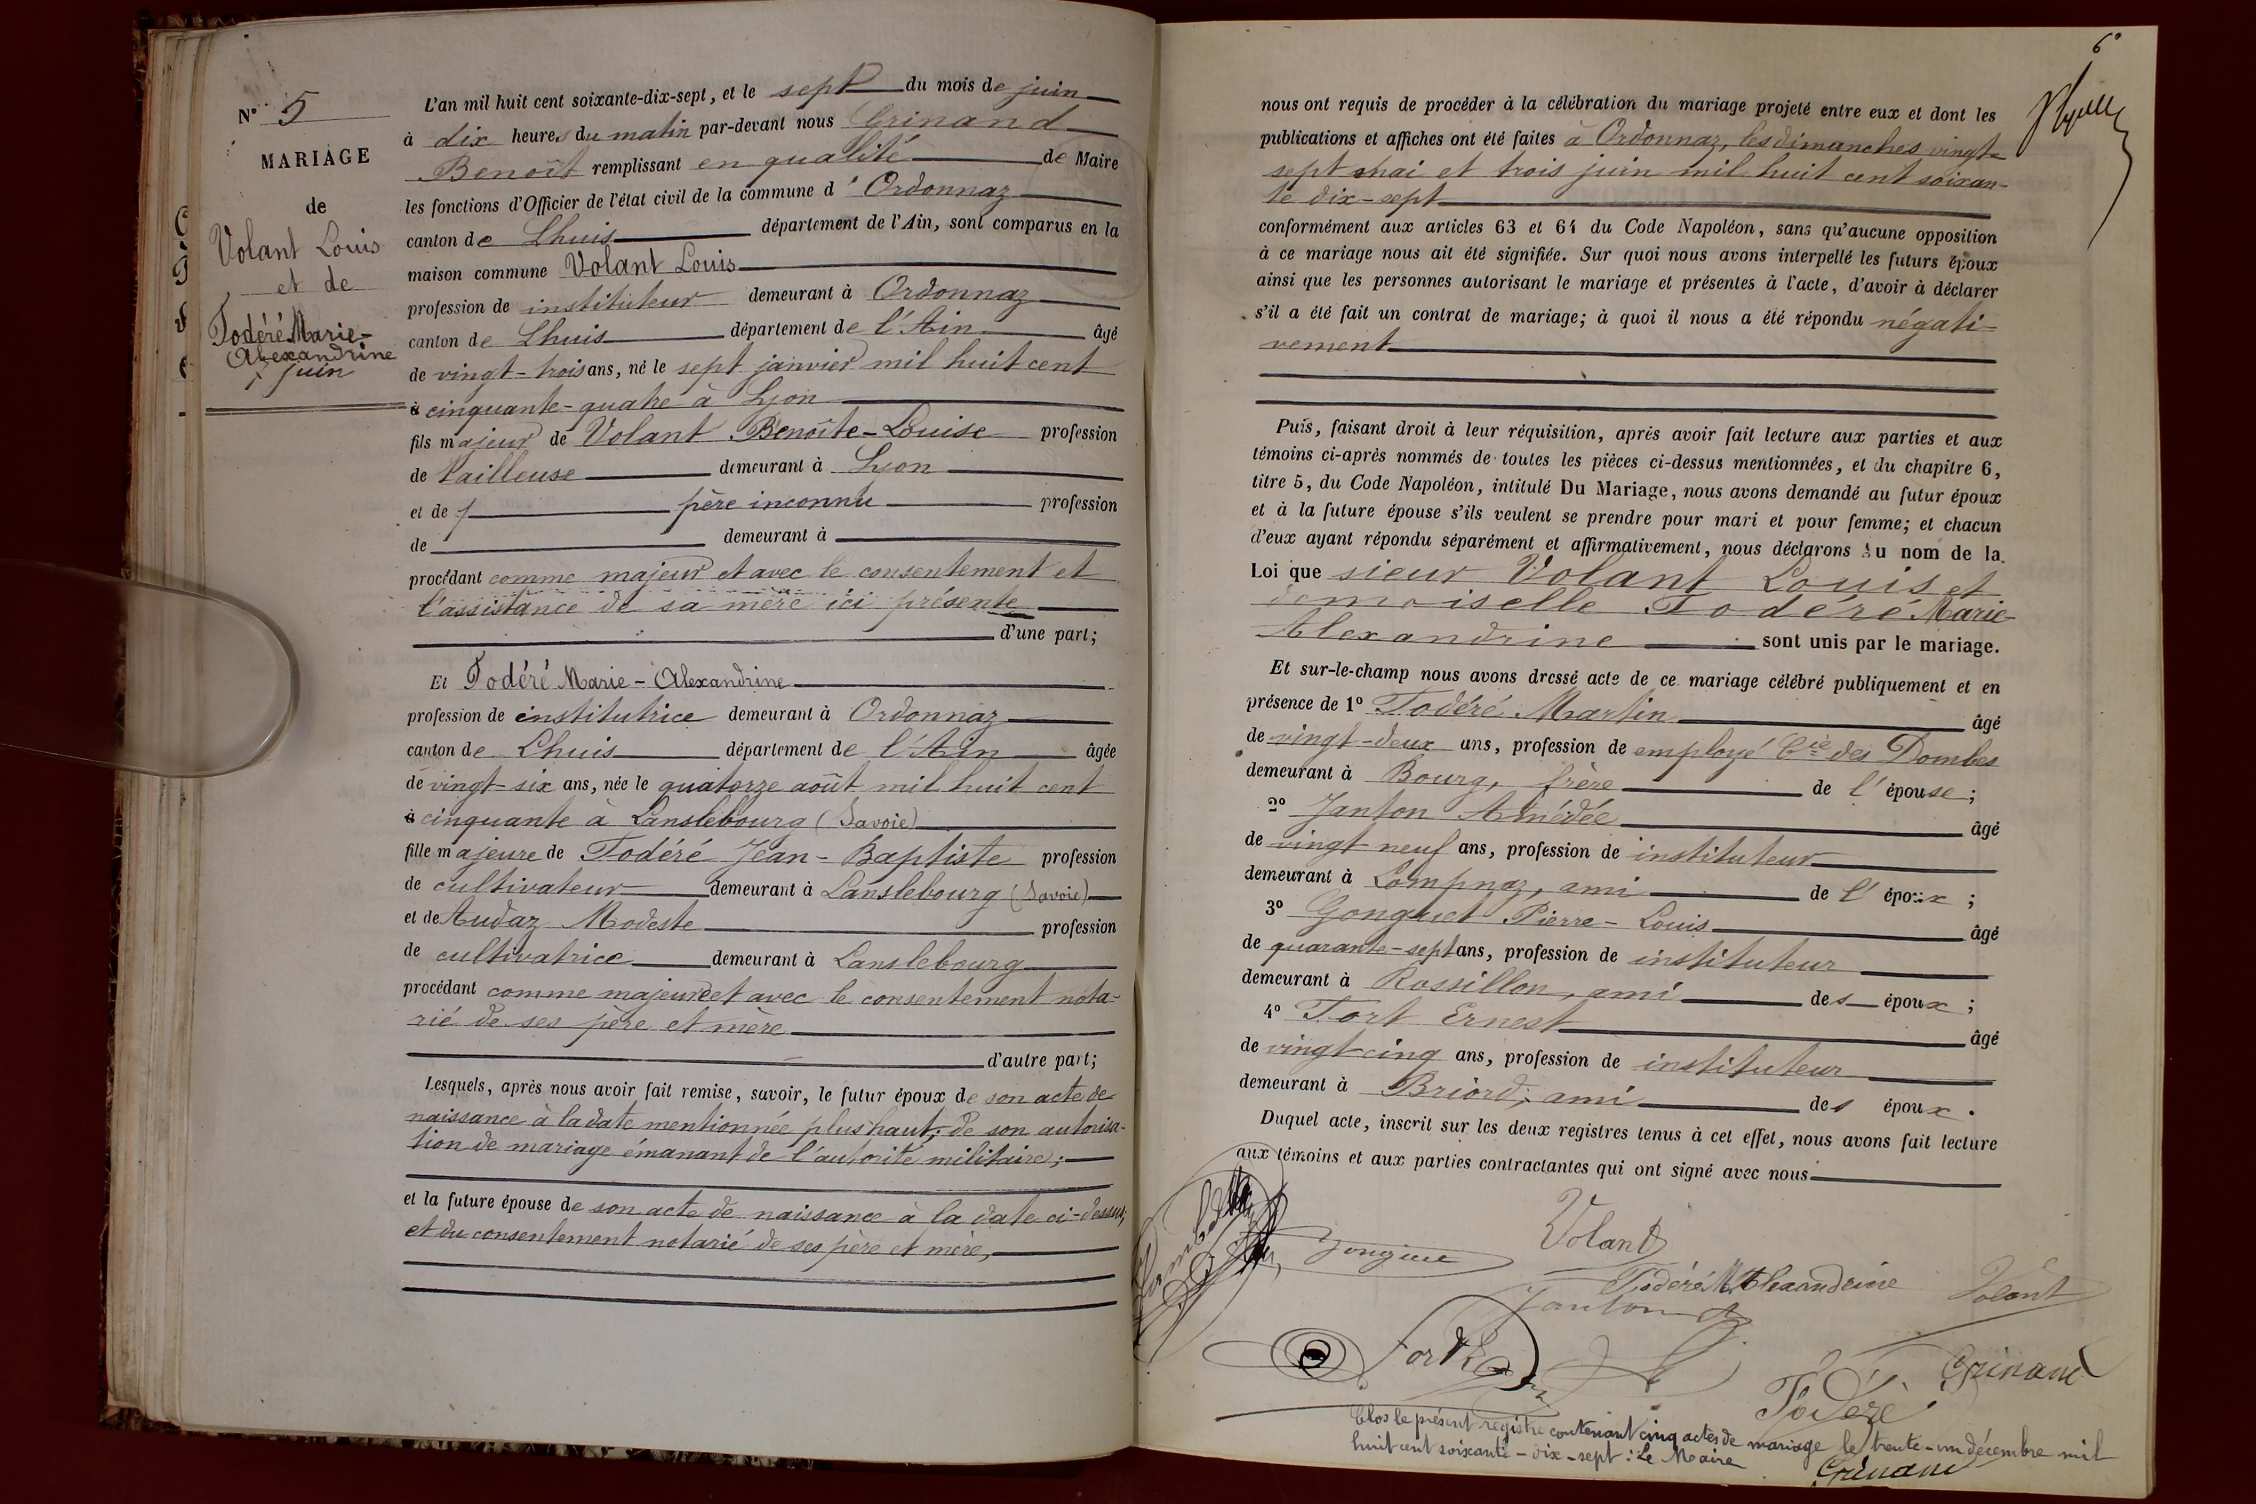 N° 5
MARIAGE
de
Volant Louis
et de
Fodéré Marie-
Alexandrine
7 juin
L'an mil huit cent soixante-dix-sept, et le sept du mois de juin
à dix heures du matin par-devant nous Grinand
Benoît remplissant en qualité de Maire
les fonctions d'Officier de l'état civil de la commune d'Ordonnaz
canton de Lhuis département de l'Ain, sont comparus en la
maison commune Volant Louis
profession de instituteur demeurant à Ordonnaz
canton de Lhuis département de l'Ain âgé
de vingt-trois ans, né le sept janvier mil huit cent
à cinquante-quatre à Lyon
fils majeur de Volant Benoîte-Louise profession
de demeurant à Lyon
et de père inconnu profession
de demeurant à
procédant comme majeur et avec le consentement et
l'assistance de sa mère ici présente
d'une part;
Et Fodéré Marie-Alexandrine
profession de institutrice demeurant à Ordonnaz
canton de Lhuis département de l'Ain âgée
de vingt-six ans, née le quatorze août mil huit cent
à cinquante à Lanslebourg (Savoie)
fille majeure de Fodéré Jean-Baptiste profession
de cultivateur demeurant à Lanslebourg (Savoie)
et de Audaz Modeste profession
de cultivatrice demeurant à Lanslebourg
procédant comme majeure et avec le consentement nota-
rié de ses père et mère
d'autre part;
Lesquels, après nous avoir fait remise, savoir, le futur époux de son acte de
naissance à la date mentionnée plus haut; de son autorisa-
tion de mariage émanant de l'autorité militaire;
et la future épouse de son acte de naissance à la date ci-dessus,
et du consentement notarié de ses père et mère,
6e
nous ont requis de procéder à la célébration du mariage projeté entre eux et dont les
publications et affiches ont été faites à Ordonnaz, les dimanches vingt-
sept mai et trois juin mil huit cent soixan-
te dix-sept
conformément aux articles 63 et 64 du Code Napoléon, sans qu'aucune opposition
à ce mariage nous ait été signifiée. Sur quoi nous avons interpellé les futurs époux
ainsi que les personnes autorisant le mariage et présentes à l'acte, d'avoir à déclarer
s'il a été fait un contrat de mariage; à quoi il nous a été répondu négati-
vement
Puis, faisant droit à leur réquisition, après avoir fait lecture aux parties et aux
témoins ci-après nommés de toutes les pièces ci-dessus mentionnées, et du chapitre 6,
titre 5, du Code Napoléon, intitulé Du Mariage, nous avons demandé au futur époux
et à la future épouse s'ils veulent se prendre pour mari et pour femme; et chacun
d'eux ayant répondu séparément et affirmativement, nous déclarons au nom de la
Loi que sieur Volant Louis et
demoiselle Fodéré Marie-
Alexandrine sont unis par le mariage.
Et sur-le-champ nous avons dressé acte de ce mariage célébré publiquement et en
présence de 1° Fodéré Martin âgé
de vingt-deux ans, profession de employé Cie des Dombes
demeurant à Bourg, frère de l'épouse;
2° Janton Amédée âgé
de vingt neuf ans, profession de instituteur
demeurant à Lompnaz, ami de l'époux;
3° Gonguet Pierre-Louis âgé
de quarante-sept ans, profession de instituteur
demeurant à Rossillon, ami des époux;
4° Fort Ernest âgé
de vingt cinq ans, profession de instituteur
demeurant à Briord, ami des époux.
Duquel acte, inscrit sur les deux registres tenus à cet effet, nous avons fait lecture
aux témoins et aux parties contractantes qui ont signé avec nous
Volant
Fodéré M. Alexandrine
Volant
Janton
Fort
Fodéré
Grinand
Clos le présent registre contenant cinq actes de mariage le trente-un décembre mil
huit cent soixante-dix-sept: Le Maire
Grinand